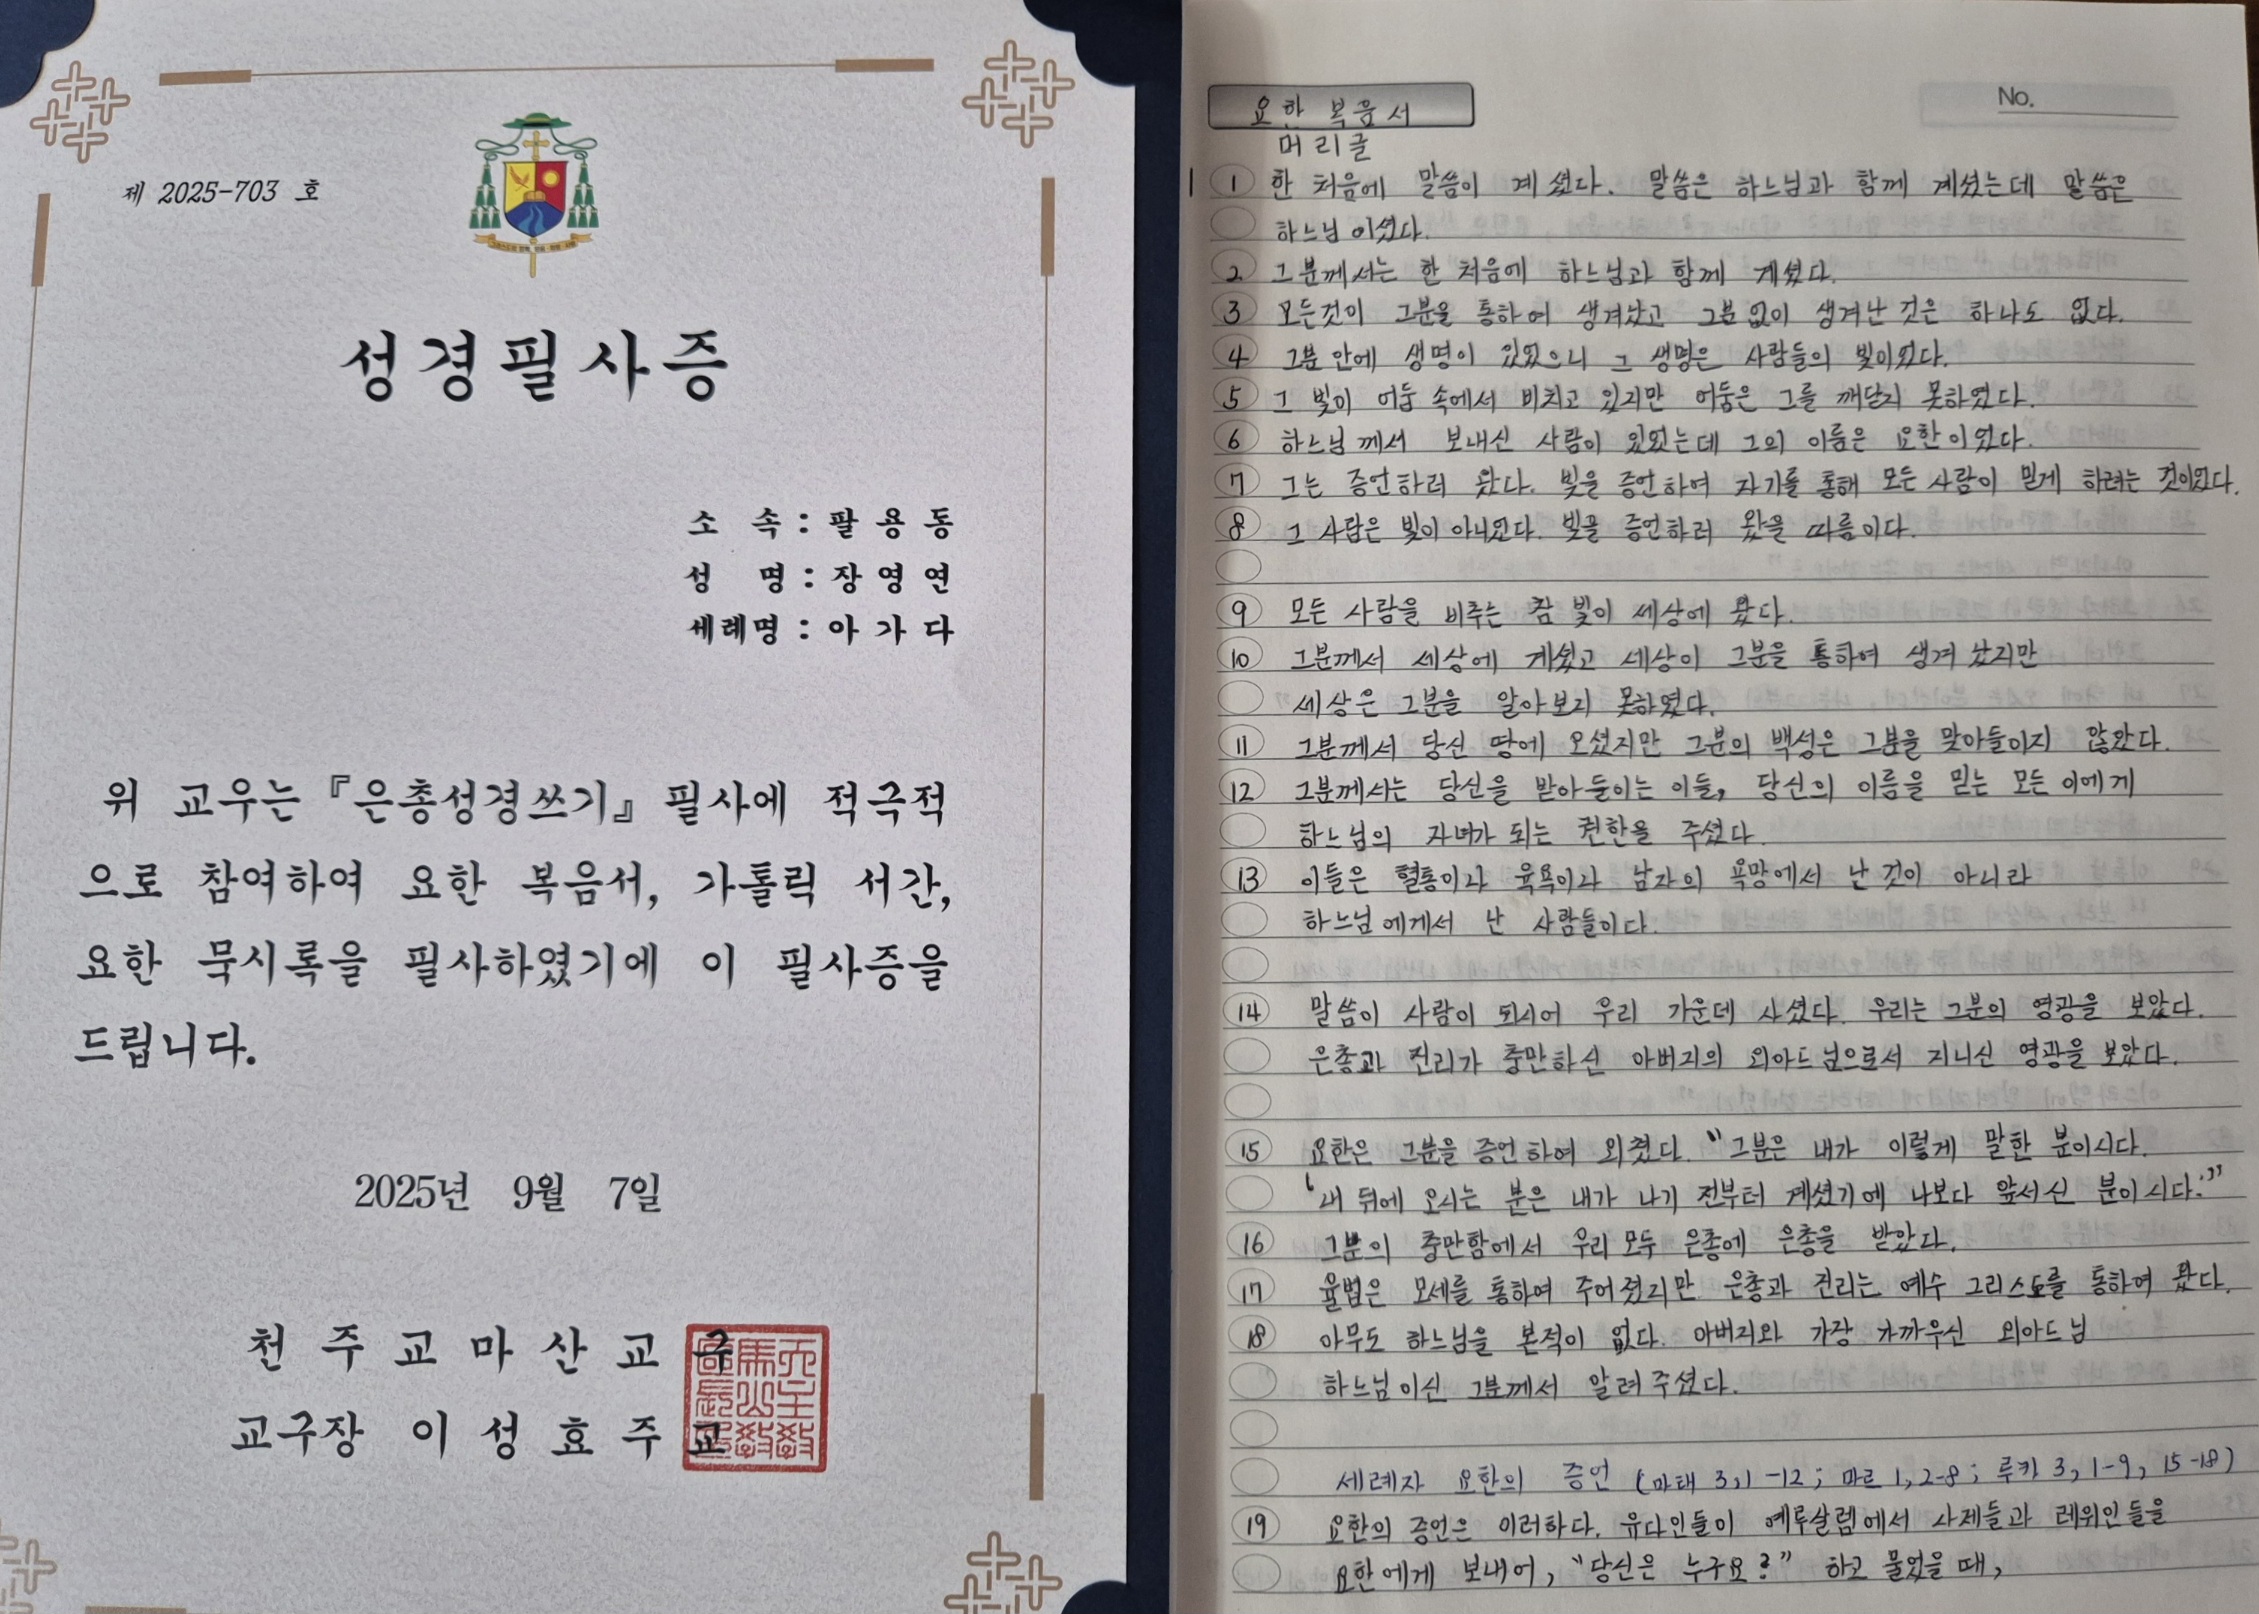 제 2025-703 호
성경필사증
소 속 : 팔 용 동
성 명 : 장 영 연
세례명 : 아 가 다
위 교우는 『은총성경쓰기』 필사에 적극적
으로 참여하여 요한 복음서, 가톨릭 서간,
요한 묵시록을 필사하였기에 이 필사증을
드립니다.
2025년 9월 7일
천 주 교 마 산 교 구
교구장 이 성 효 주 교
No.
요한 복음서
머리글
1 ① 한 처음에 말씀이 계셨다. 말씀은 하느님과 함께 계셨는데 말씀은
하느님이셨다.
② 그분께서는 한 처음에 하느님과 함께 계셨다.
③ 모든것이 그분을 통하여 생겨났고 그분 없이 생겨난 것은 하나도 없다.
④ 그분 안에 생명이 있었으니 그 생명은 사람들의 빛이었다.
⑤ 그 빛이 어둠 속에서 비치고 있지만 어둠은 그를 깨닫지 못하였다.
⑥ 하느님께서 보내신 사람이 있었는데 그의 이름은 요한이었다.
⑦ 그는 증언하러 왔다. 빛을 증언하여 자기를 통해 모든 사람이 믿게 하려는 것이었다.
⑧ 그 사람은 빛이 아니었다. 빛을 증언하러 왔을 따름이다.
⑨ 모든 사람을 비추는 참 빛이 세상에 왔다.
⑩ 그분께서 세상에 계셨고 세상이 그분을 통하여 생겨 났지만
세상은 그분을 알아보지 못하였다.
⑪ 그분께서 당신 땅에 오셨지만 그분의 백성은 그분을 맞아들이지 않았다.
⑫ 그분께서는 당신을 받아들이는 이들, 당신의 이름을 믿는 모든 이에게
하느님의 자녀가 되는 권한을 주셨다.
⑬ 이들은 혈통이나 육욕이나 남자의 욕망에서 난 것이 아니라
하느님에게서 난 사람들이다.
⑭ 말씀이 사람이 되시어 우리 가운데 사셨다. 우리는 그분의 영광을 보았다.
은총과 진리가 충만하신 아버지의 외아드님으로서 지니신 영광을 보았다.
⑮ 요한은 그분을 증언하여 외쳤다. "그분은 내가 이렇게 말한 분이시다.
'내 뒤에 오시는 분은 내가 나기 전부터 계셨기에 나보다 앞서신 분이시다.'"
⑯ 그분의 충만함에서 우리 모두 은총에 은총을 받았다.
⑰ 율법은 모세를 통하여 주어졌지만 은총과 진리는 예수 그리스도를 통하여 왔다.
⑱ 아무도 하느님을 본적이 없다. 아버지와 가장 가까우신 외아드님
하느님이신 그분께서 알려주셨다.
세례자 요한의 증언 (마태 3,1-12; 마르 1,2-8; 루카 3,1-9, 15-18)
⑲ 요한의 증언은 이러하다. 유다인들이 예루살렘에서 사제들과 레위인들을
요한에게 보내어, "당신은 누구요?" 하고 물었을 때,